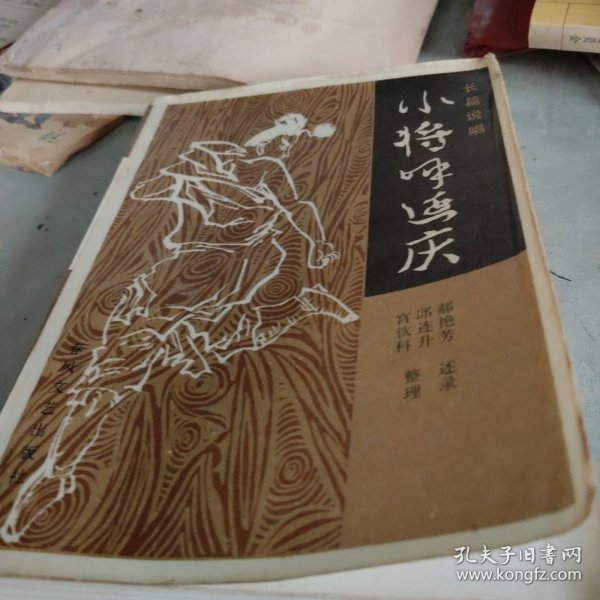 长篇说唱
小将呼延庆
郝艳芳 述录
邱连升
宫钦科 整理
春风文艺出版社
孔夫子旧书网
www.kongfz.com